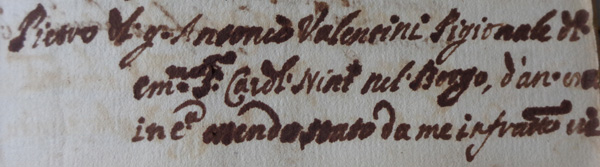 Pietro del q. Antonio Valentini Pigionale del
em.mo S. Card.l Nini nel Borgo, d'an.
in c.a essendo stato da me infratto